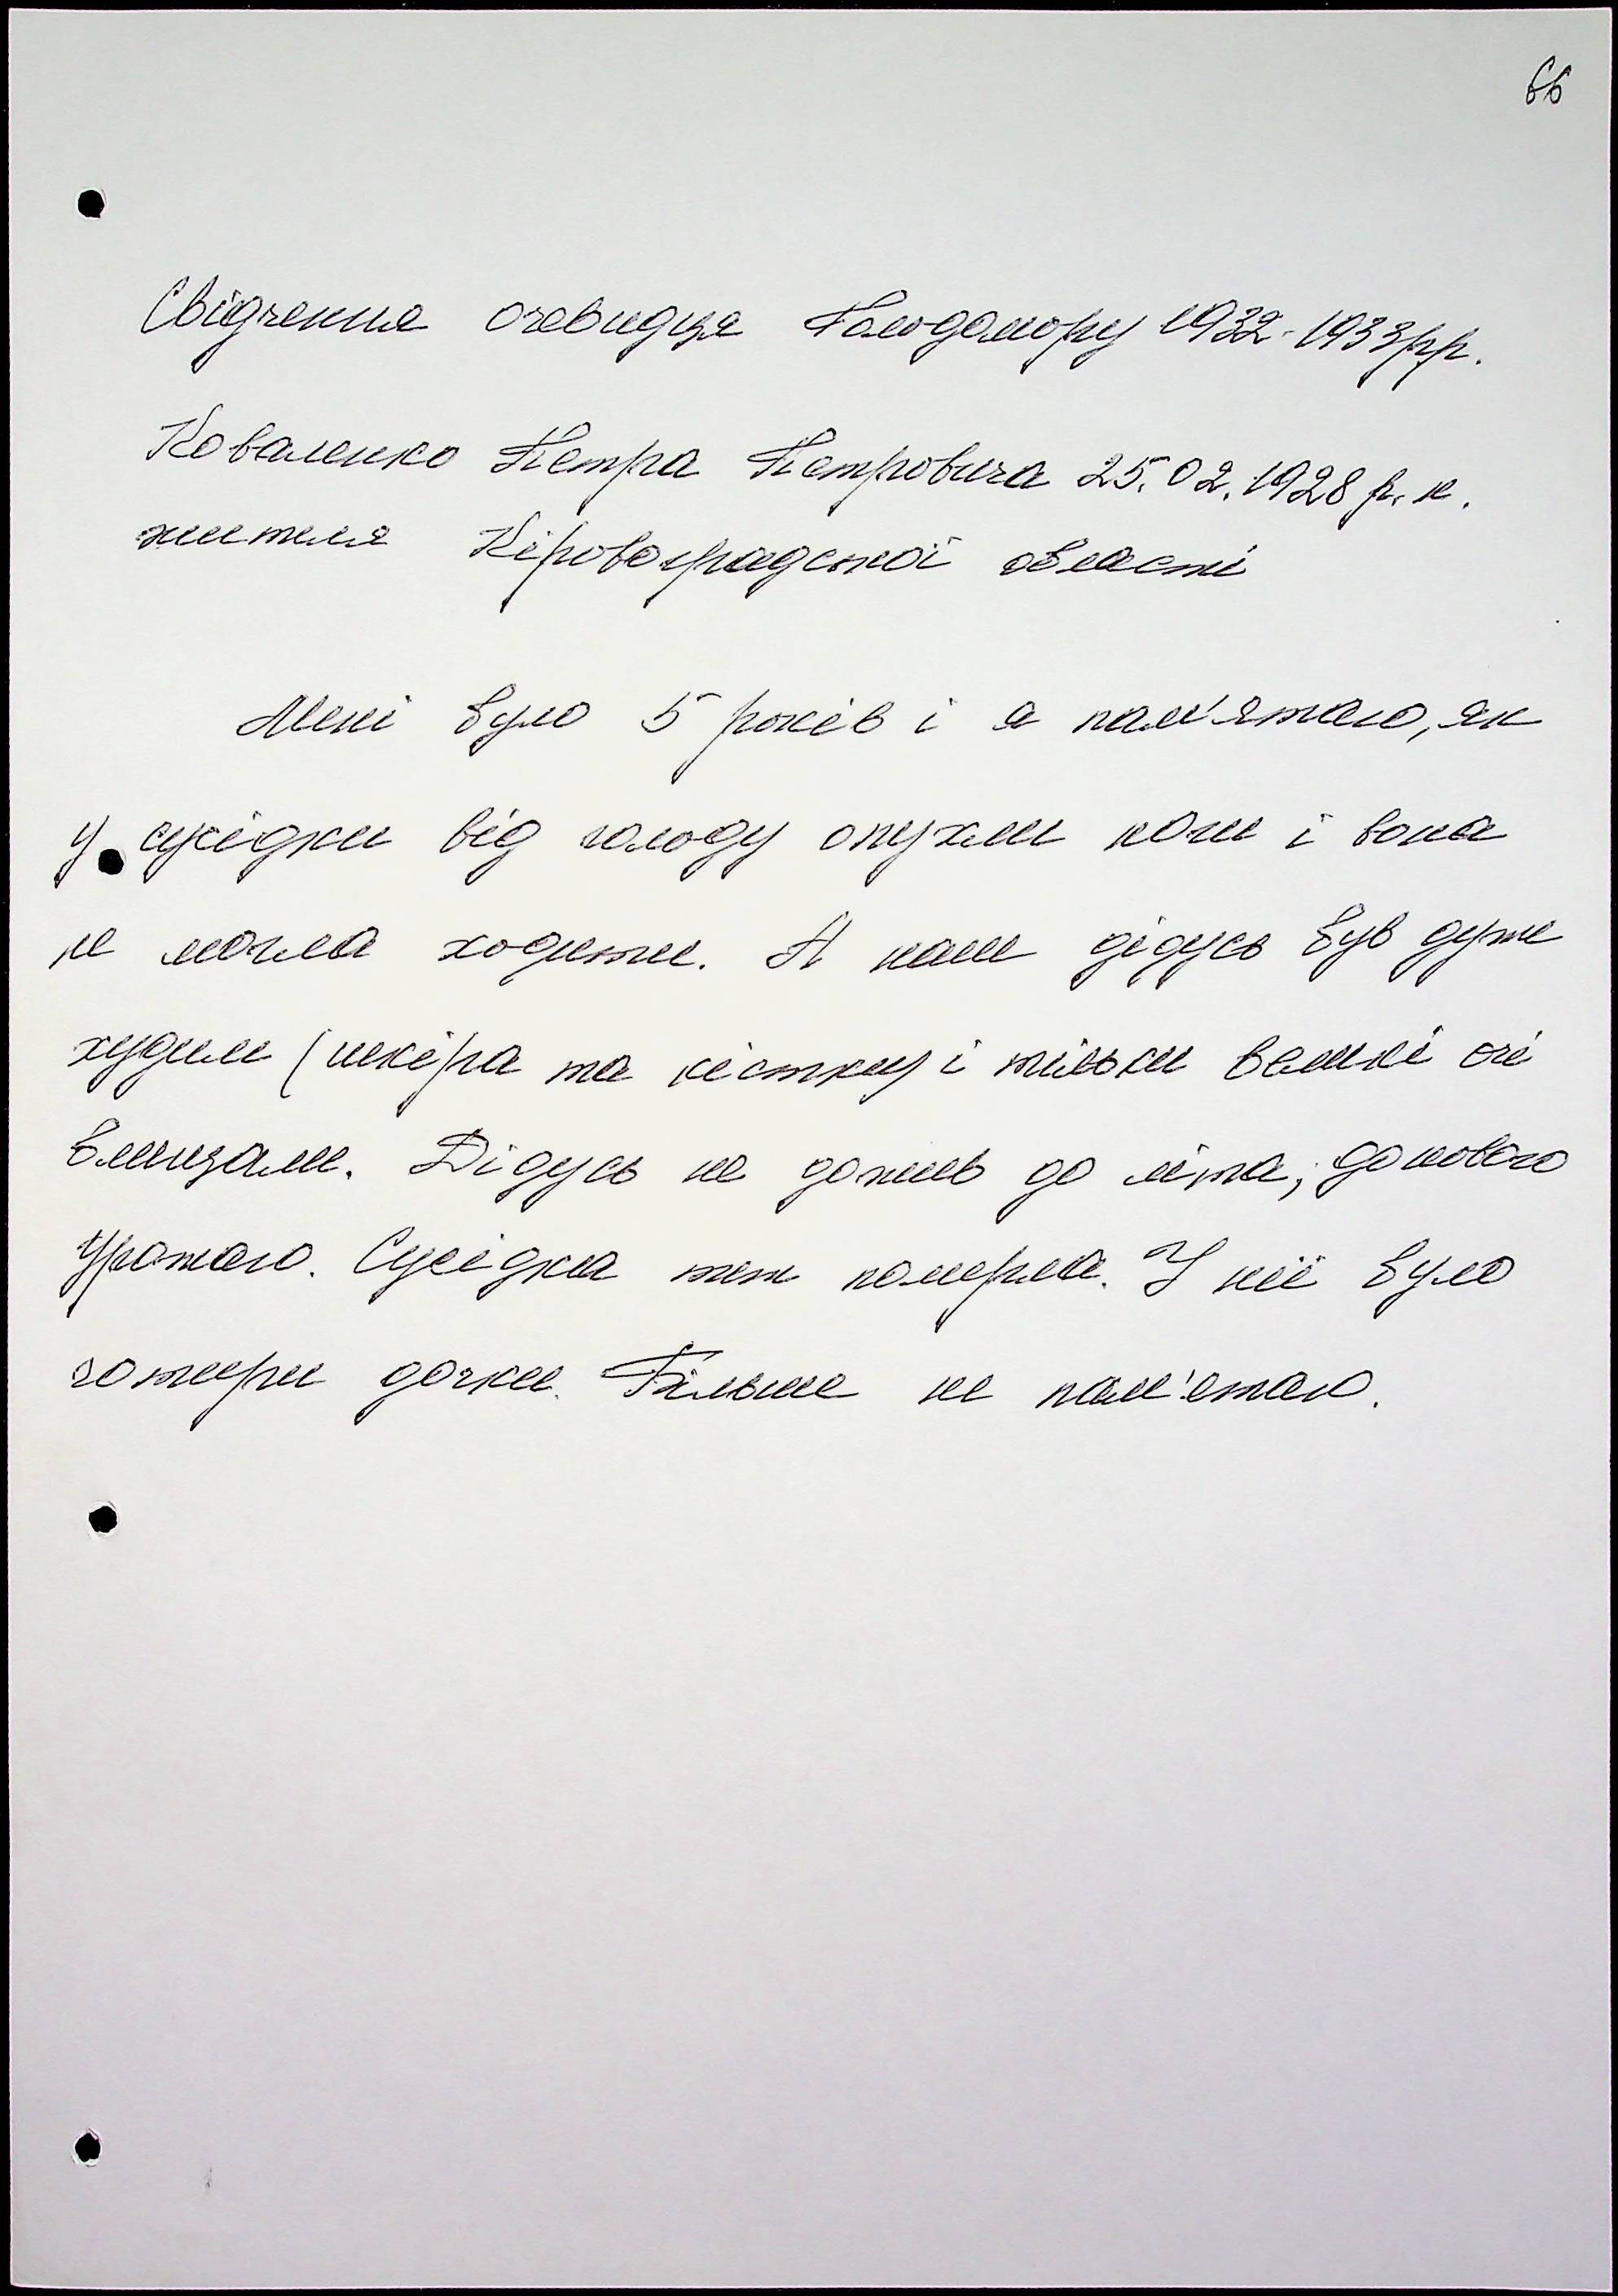 66
Свідчення очевидця Голодомору 1932-1933рр.
Коваленко Петра Петровича 25.02.1928 р.н.
жителя Кіровоградської області
Мені було 5 років і я пам'ятаю, як
у сусідки від голоду опухли ноги і вона
не могла ходити. А наш дідусь був дуже
худим (шкіра та кістки) і тільки великі очі
блищали. Дідусь не дожив до літа, до нового
урожаю. Сусідка теж померла. У неї було
чотири дочки. Більше не пам'ятаю.